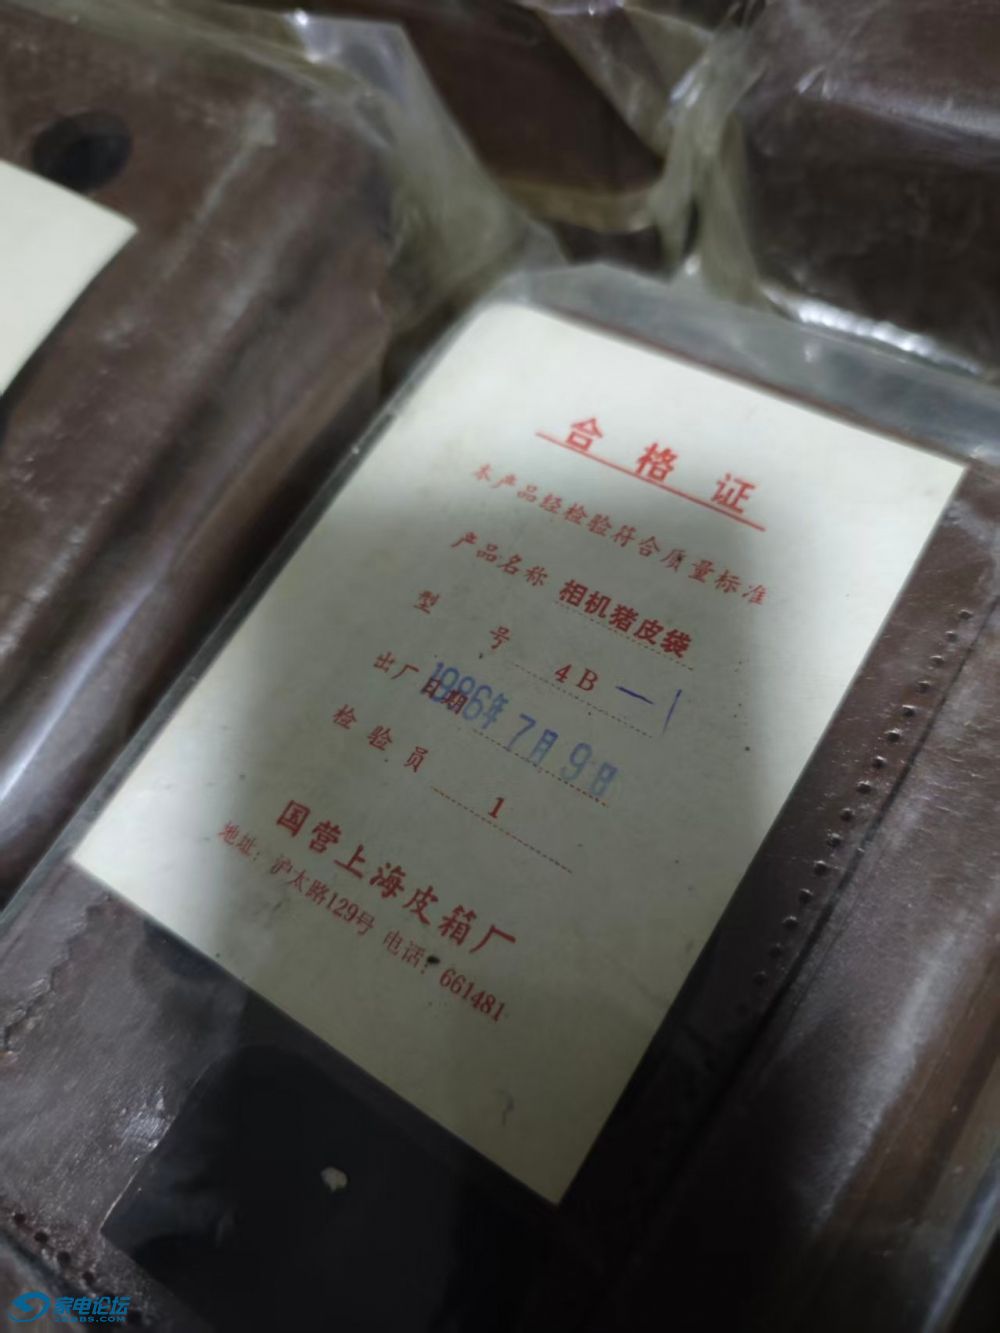 合格证
本产品经检验符合质量标准
产品名称 相机猪皮袋
型号 4B—1
出厂日期 1986年7月9日
检验员 1
国营上海皮箱厂
地址：沪太路129号 电话：661481
家电论坛
JDBBS.COM